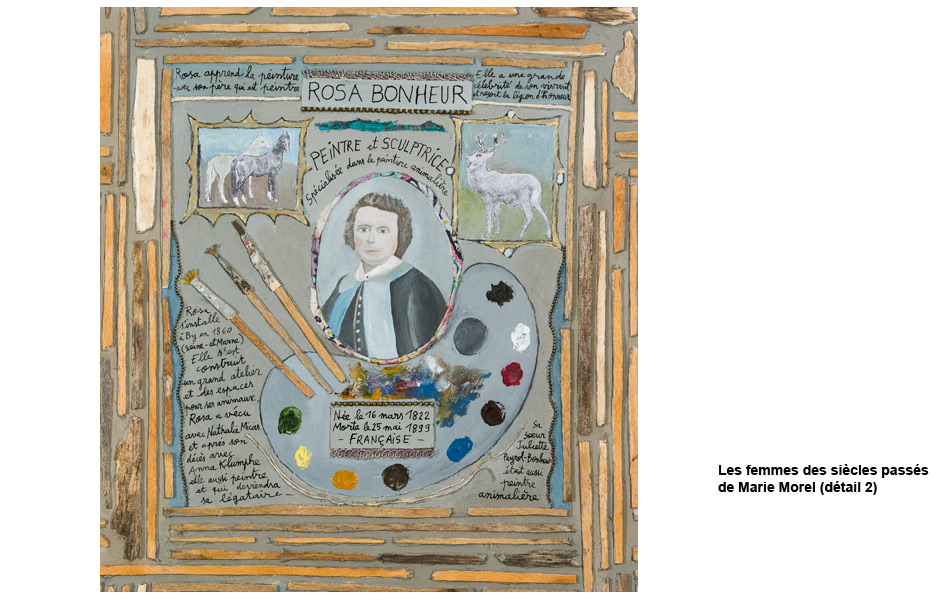 Rosa apprend la peinture
avec son père qui est peintre
ROSA BONHEUR
Elle a une grande
célébrité de son vivant
et reçoit la légion d'honneur
PEINTRE et SCULPTRICE
Spécialisée dans la peinture animalière
Rosa
s'installe
à By en 1860
(Seine-et-Marne)
Elle s'est
construit
un grand atelier
et des espaces
pour ses animaux.
Rosa a vécu
avec Nathalie Micas
et après son
décès avec
Anna Klumpke
elle aussi peintre
et qui deviendra
sa légataire
Née le 16 mars 1822
Morte le 25 mai 1899
- FRANÇAISE -
Sa
soeur
Juliette
Peyrol-Bonheur
était aussi
peintre
animalière
Les femmes des siècles passés
de Marie Morel (détail 2)